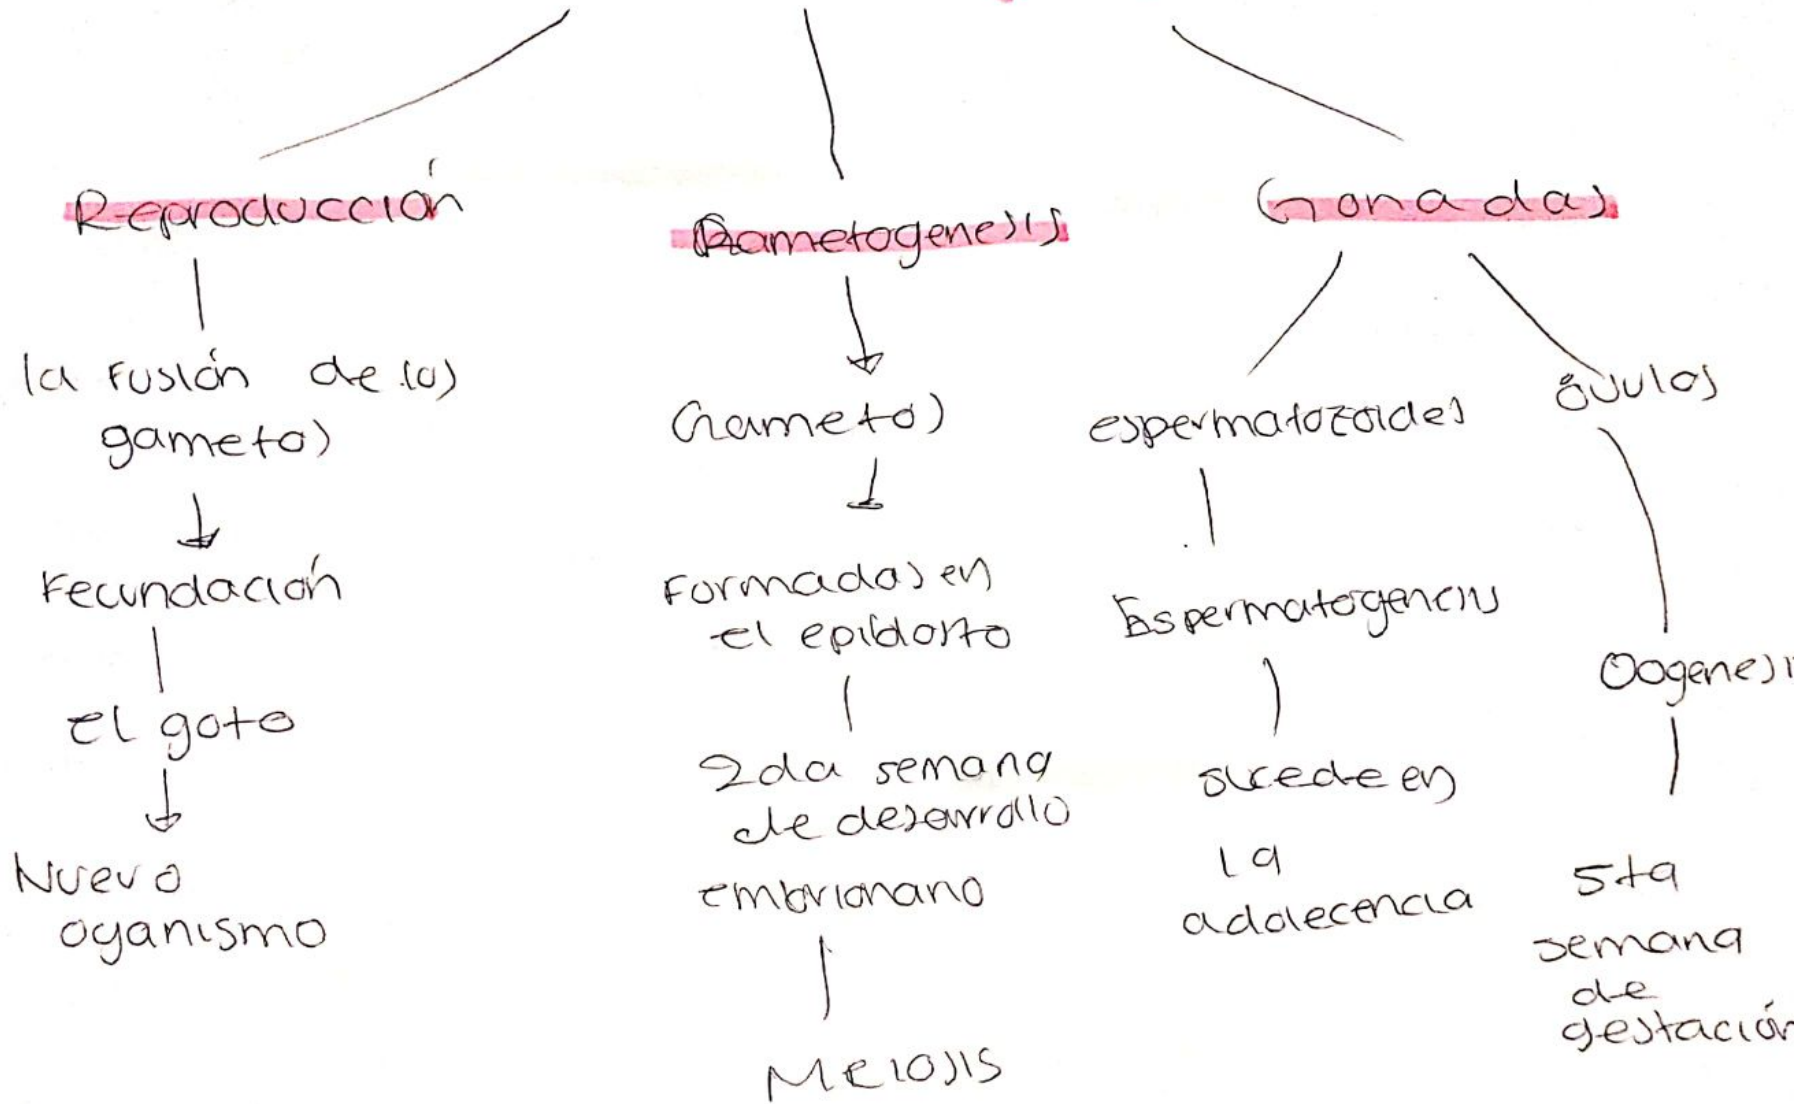 Reproducción
la fusión de los
gametos
Fecundación
el goto
Nuevo
oganismo
Gametogenesis
Gametos
Formadas en
el epiblasto
2da semana
de desarrollo
embrionario
Meiosis
Gonadas
espermatozoides
Espermatogencis
sucede en
la
adolecencia
óvulos
Oogenesis
5ta
semana
de
gestación